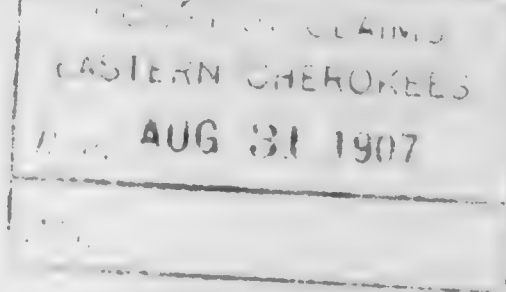 CLAIMS
EASTERN CHEROKEES
AUG 31 1907